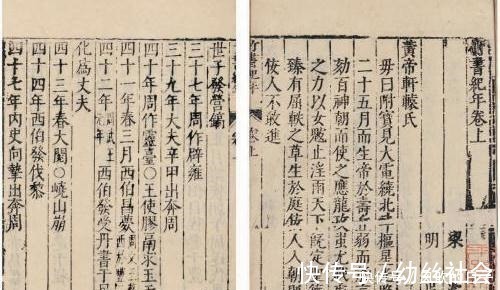 竹書紀年卷上
梁
明
黃帝軒轅氏
母曰附寶見大電繞北斗樞星
二十五月而生帝於壽丘弱而
劾百神朝而使之應龍攻蚩尤
之力以女魃止淫雨天下旣定
臻有屈軼之草生於庭佞人入朝
佞人不敢進
世子發營鎬
三十七年周作辟雍
三十九年大夫辛甲出奔周
四十年周作靈臺○王使膠鬲求玉
四十一年春三月西伯昌薨
四十二年 西伯發受丹書于
化爲丈夫
四十三年春大閱○嶢山崩
四十四年西伯發伐黎
四十七年內史向摯出奔周
快传号/幼丝社会